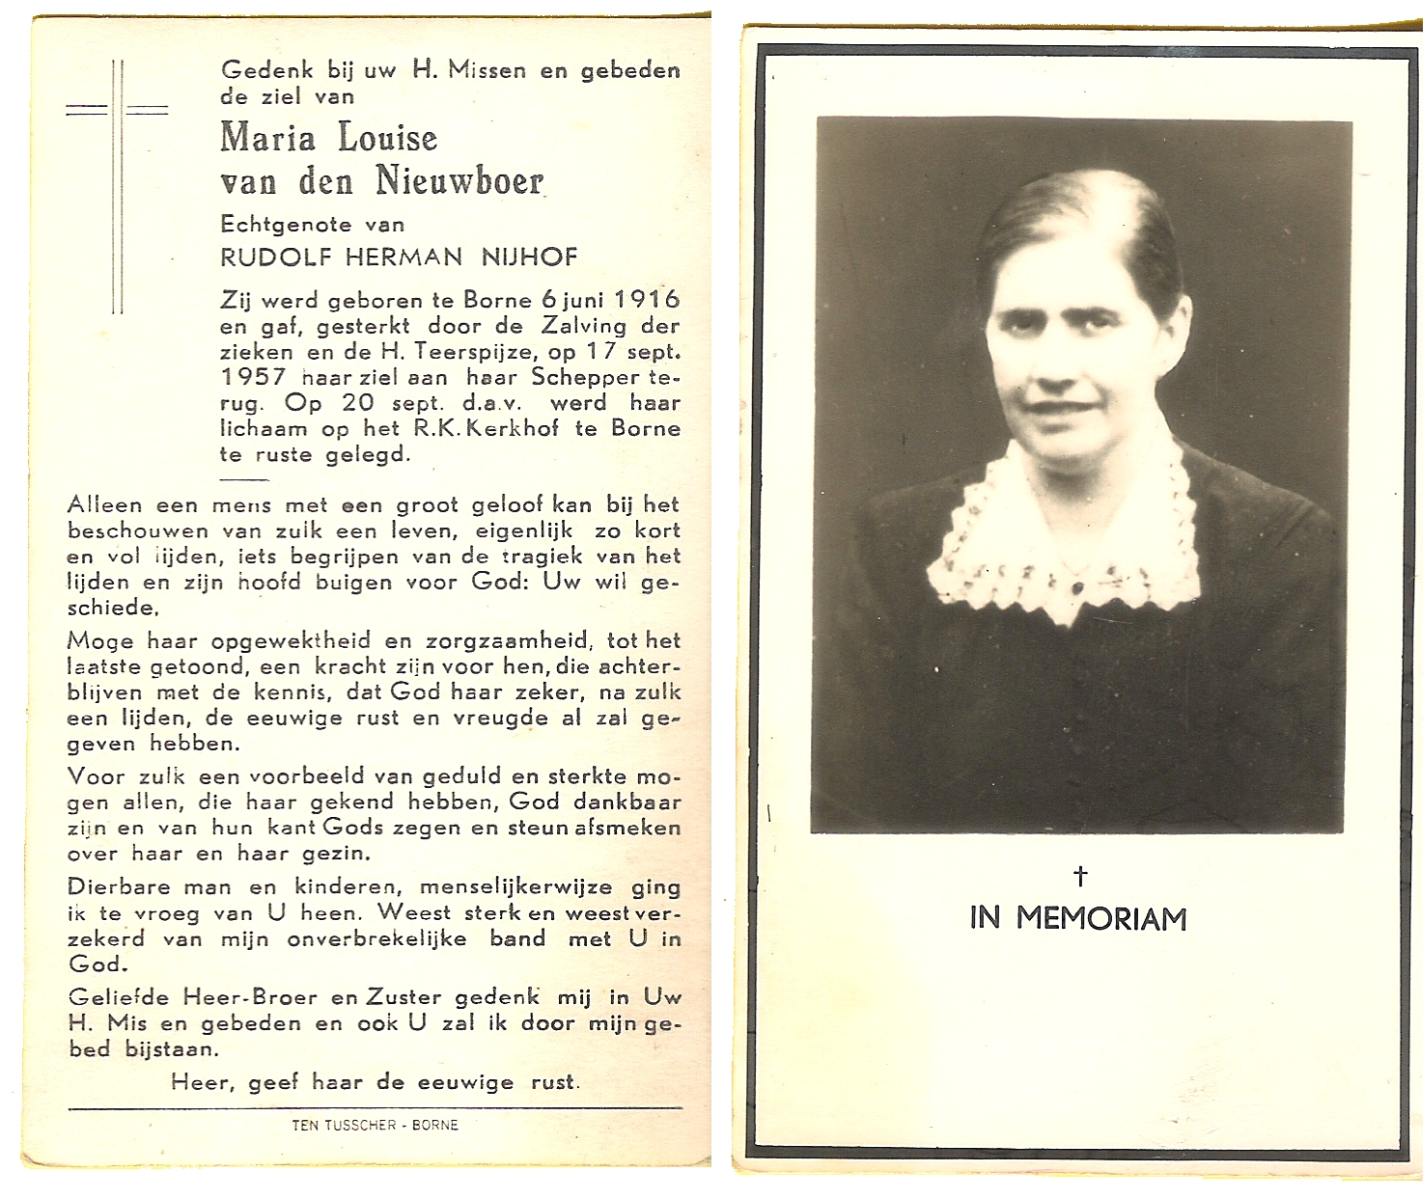 Gedenk bij uw H. Missen en gebeden
de ziel van
Maria Louise
van den Nieuwboer
Echtgenote van
RUDOLF HERMAN NIJHOF
Zij werd geboren te Borne 6 juni 1916
en gaf, gesterkt door de Zalving der
zieken en de H. Teerspijze, op 17 sept.
1957 haar ziel aan haar Schepper te-
rug. Op 20 sept. d.a.v. werd haar
lichaam op het R.K. Kerkhof te Borne
te ruste gelegd.
Alleen een mens met een groot geloof kan bij het
beschouwen van zulk een leven, eigenlijk zo kort
en vol lijden, iets begrijpen van de tragiek van het
lijden en zijn hoofd buigen voor God: Uw wil ge-
schiede.
Moge haar opgewektheid en zorgzaamheid, tot het
laatste getoond, een kracht zijn voor hen, die achter-
blijven met de kennis, dat God haar zeker, na zulk
een lijden, de eeuwige rust en vreugde al zal ge-
geven hebben.
Voor zulk een voorbeeld van geduld en sterkte mo-
gen allen, die haar gekend hebben, God dankbaar
zijn en van hun kant Gods zegen en steun afsmeken
over haar en haar gezin.
Dierbare man en kinderen, menselijkerwijze ging
ik te vroeg van U heen. Weest sterk en weest ver-
zekerd van mijn onverbrekelijke band met U in
God.
Geliefde Heer-Broer en Zuster gedenk mij in Uw
H. Mis en gebeden en ook U zal ik door mijn ge-
bed bijstaan.
Heer, geef haar de eeuwige rust.
TEN TUSSCHER - BORNE
✝
IN MEMORIAM